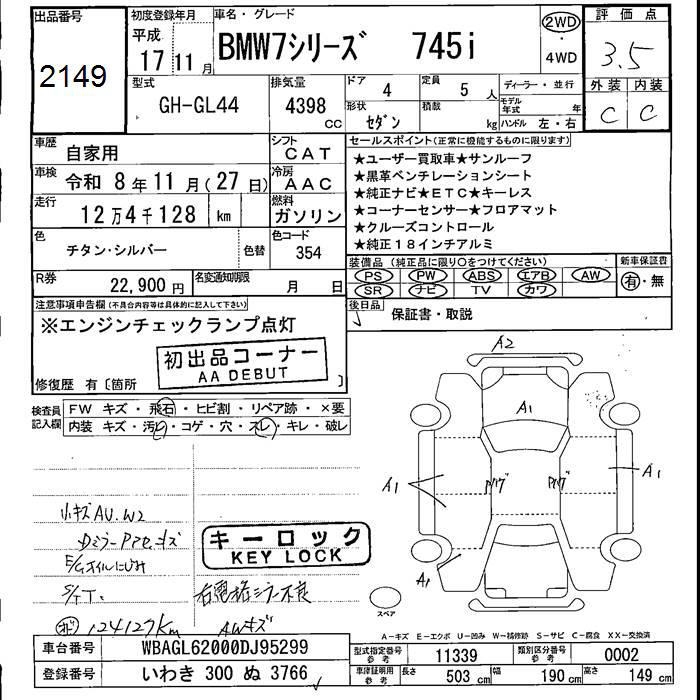 出品番号
2149
初度登録年月
平成
17 11 月
車名・グレード
BMW7シリーズ 745i
2WD
・
4WD
評価点
3.5
外装 内装
C C
型式
GH-GL44
排気量
4398
CC
ドア
4
定員
5 人
形状
セダン
積載
kg
ディーラー・並行
モデル年式 年
ハンドル 左・右
車歴
自家用
シフト
CAT
車検
令和 8年11月(27日)
冷房
AAC
走行
12万4千128 km
燃料
ガソリン
色
チタン・シルバー
色替
色コード
354
R券
22,900円
名変通知期限
月 日
セールスポイント(正常に機能するものに限ります)
★ユーザー買取車★サンルーフ
★黒革ベンチレーションシート
★純正ナビ★ETC★キーレス
★コーナーセンサー★フロアマット
★クルーズコントロール
★純正18インチアルミ
装備品(純正品に限り〇をつけてください)
PS PW ABS エアB AW
SR ナビ TV カワ
新車保証書
有・無
後日品
保証書・取説
注意事項申告欄(不具合内容等は具体的に記入して下さい)
※エンジンチェックランプ点灯
初出品コーナー
AA DEBUT
修復歴 有〔箇所 〕
検査員記入欄
FW キズ・飛石・ヒビ割・リペア跡・×要
内装 キズ・汚レ・コゲ・穴・スレ・キレ・破レ
小キズAU.W2
キーロック
KEY LOCK
右電格ミラー不良
124127Km
AWキズ
A2
A1
A1
A1
A1
スペア
A-キズ E-エクボ U-凹み W-補修跡 S-サビ C-腐食 XX-交換済
車台番号
WBAGL62000DJ95299
登録番号
いわき 300 ぬ 3766
型式指定番号
参考
11339
類別区分番号
参考
0002
車体証明用
参考
長さ
503 cm
幅
190 cm
高さ
149 cm